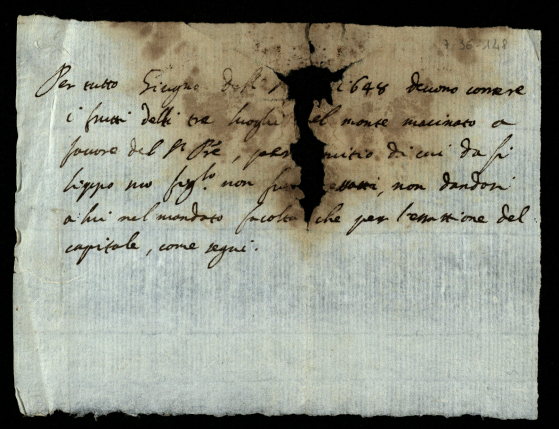 7-36-148
Per tutto Giugno dell' 1648 devono correre
i frutti delli tre luoghi del monte macinato a
favore del Sr Pre, per di cui da fi
lippo suo figlo. non furo essatti, non dandosi
a lui nel mandato facoltà che per l'essattione del
capitale, come segui.